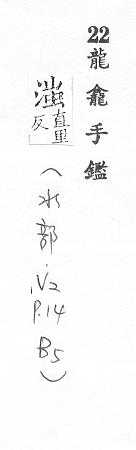 22龍龕手鑑
滍直里反
(水部.V2 P.14 B5)